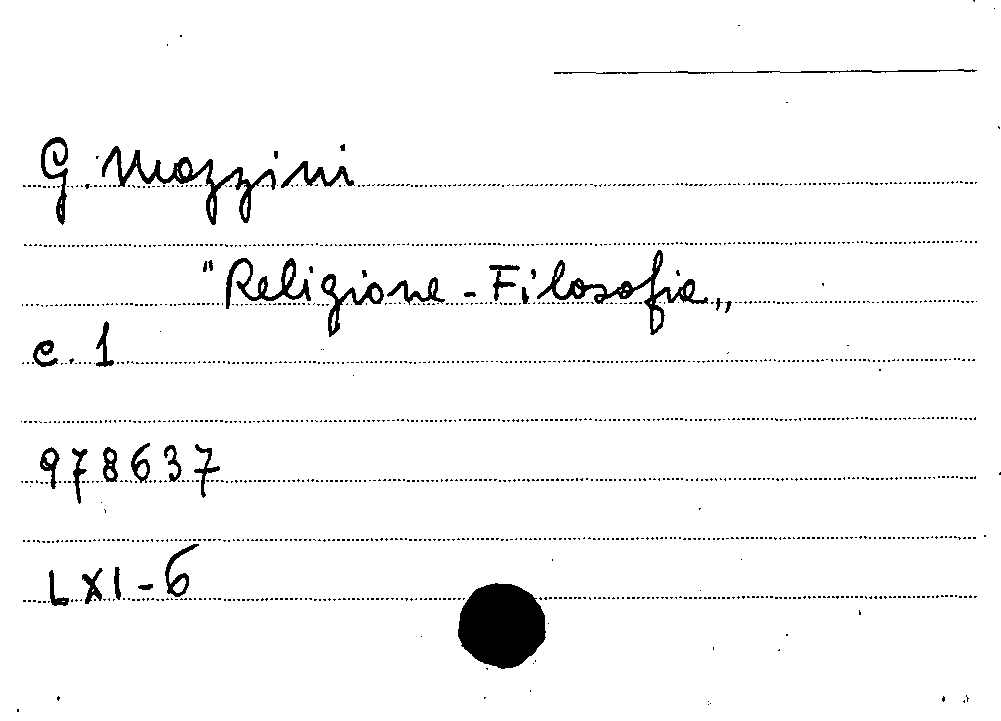 G. Mazzini
"Religione - Filosofia„
c. 1
978637
LXI - 6